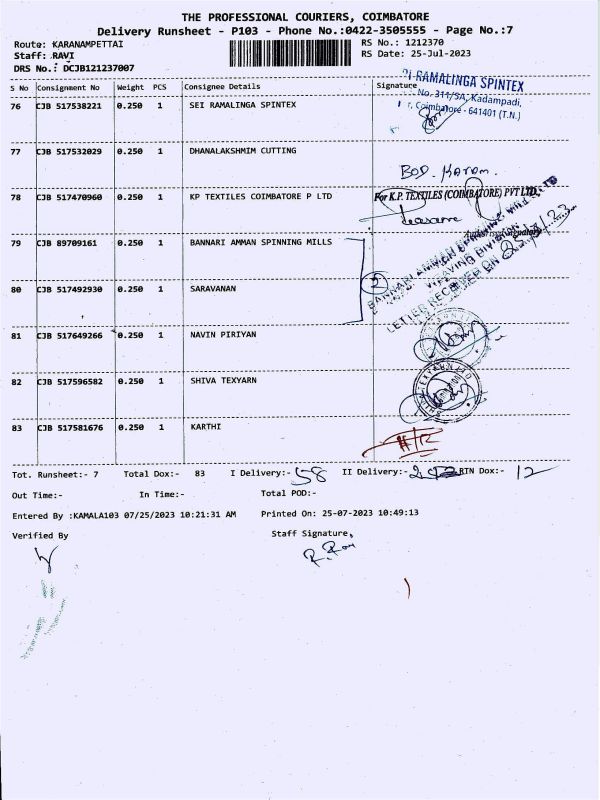 THE PROFESSIONAL COURIERS, COIMBATORE
Delivery Runsheet - P103 - Phone No.:0422-3505555 - Page No.:7
Route: KARANAMPETTAI RS No.: 1212370
Staff: RAVI RS Date: 25-Jul-2023
DRS No.: DCJB121237007
S No Consignment No Weight PCS Consignee Details Signature
RAMALINGA SPINTEX
No. 311/5A, Kadampadi,
Coimbatore - 641401 (T.N.)
76 CJB 517538221 0.250 1 SEI RAMALINGA SPINTEX
77 CJB 517532029 0.250 1 DHANALAKSHMIM CUTTING
78 CJB 517470960 0.250 1 KP TEXTILES COIMBATORE P LTD For K.P. TEXTILES (COIMBATORE) PVT LTD.,
79 CJB 89709161 0.250 1 BANNARI AMMAN SPINNING MILLS
BANNARI AMMAN SPINNING MILLS LTD
WEAVING DIVISION
LETTER RECEIVED ON
2
80 CJB 517492930 0.250 1 SARAVANAN
81 CJB 517649266 0.250 1 NAVIN PIRIYAN
82 CJB 517596582 0.250 1 SHIVA TEXYARN
83 CJB 517581676 0.250 1 KARTHI
Tot. Runsheet:- 7 Total Dox:- 83 I Delivery:- 58 II Delivery:- RTN Dox:- 12
Out Time:- In Time:- Total POD:-
Entered By :KAMALA103 07/25/2023 10:21:31 AM Printed On: 25-07-2023 10:49:13
Verified By Staff Signature,